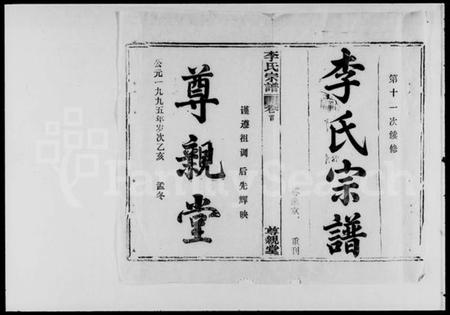 第十一次续修
李氏宗譜
重刊
李氏宗譜
卷首
尊親堂
谨遵祖训 后先辉映
尊親堂
公元一九九五年岁次乙亥 孟冬
FamilySearch